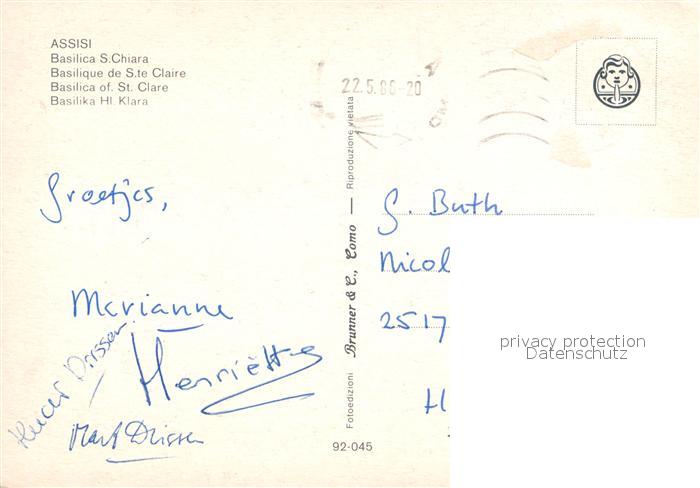 ASSISI
Basilica S.Chiara
Basilique de S.te Claire
Basilica of. St. Clare
Basilika Hl. Klara
22.5.86-20
Groetjes,
Marianne
Henriëtte
Drissen
Mart Drissen
Fotoedizioni Brunner & C., Como — Riproduzione vietata
92-045
G. Buth
Nicol
2517
H
privacy protection
Datenschutz